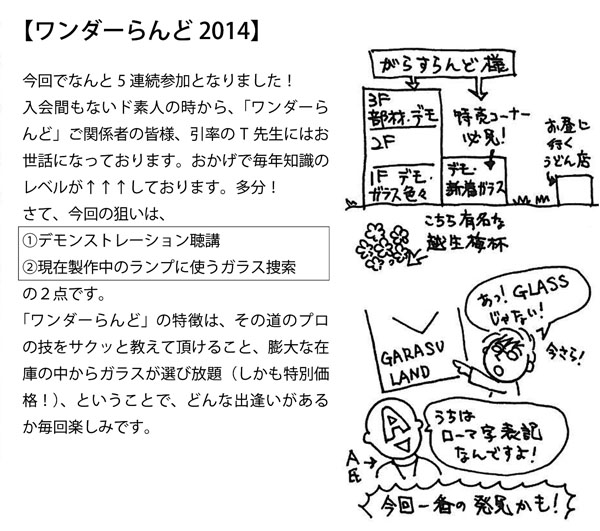 【ワンダーらんど 2014】
今回でなんと 5 連続参加となりました！
入会間もないド素人の時から、「ワンダーら
んど」ご関係者の皆様、引率の T 先生にはお
世話になっております。おかげで毎年知識の
レベルが↑↑↑しております。多分！
さて、今回の狙いは、
①デモンストレーション聴講
②現在製作中のランプに使うガラス捜索
の２点です。
「ワンダーらんど」の特徴は、その道のプロ
の技をサクッと教えて頂けること、膨大な在
庫の中からガラスが選び放題（しかも特別価
格！）、ということで、どんな出逢いがある
か毎回楽しみです。
がらすらんど様
3F
部材・デモ
2F
1F デモ・
ガラス色々
特売コーナー
必見！
デモ・
新着ガラス
お昼に
行く
うどん店
こちら有名な
越生梅林
あっ！GLASS
じゃない！
今さら！
GARASU
LAND
A
うちは
ローマ字表記
なんですよ！
A
氏
今回一番の発見かも！